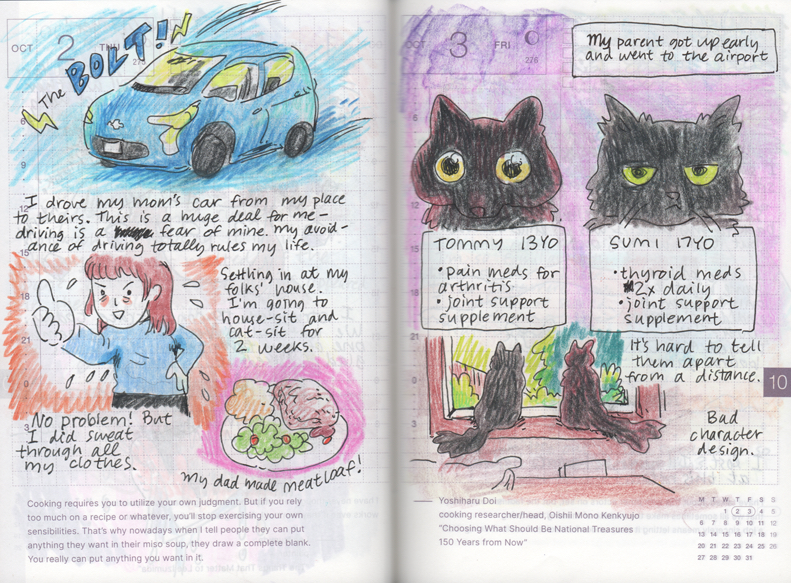 OCT 2 THU
275
The BOLT!
I drove my mom's car from my place
to theirs. This is a huge deal for me –
driving is a fear of mine. my avoid-
ance of driving totally rules my life.
Settling in at my
folks' house.
I'm going to
house-sit and
cat-sit for
2 weeks.
No problem! But
I did sweat
through all
my clothes.
my dad made meatloaf!
Cooking requires you to utilize your own judgment. But if you rely
too much on a recipe or whatever, you'll stop exercising your own
sensibilities. That's why nowadays when I tell people they can put
anything they want in their miso soup, they draw a complete blank.
You really can put anything you want in it.
OCT 3 FRI
276
My parent got up early
and went to the airport
TOMMY 13YO
• pain meds for
arthritis
• joint support
supplement
SUMI 17YO
• thyroid meds
2x daily
• joint support
supplement
It's hard to tell
them apart
from a distance.
Bad
character
design.
10
Yoshiharu Doi
cooking researcher/head, Oishii Mono Kenkyujo
"Choosing What Should Be National Treasures
150 Years from Now"
M T W T F S S
1 2 3 4 5
6 7 8 9 10 11 12
13 14 15 16 17 18 19
20 21 22 23 24 25 26
27 28 29 30 31